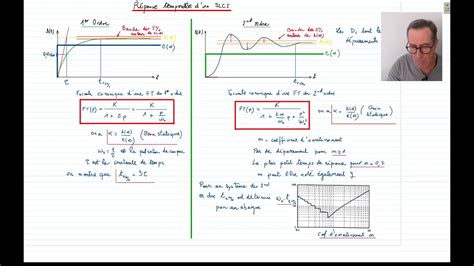 Réponse temporelle d'un SLCI
1er Ordre
s(t)
Bande des 5%
autour de s(∞)
s(∞)
e(∞)
t
tr5%
Formule canonique d'une FT du 1er ordre
FT(p) = K / (1 + τp) = K / (1 + p/ω0)
on a K = s(∞)/e(∞) (Gain statique)
ω0 = 1/τ est la pulsation de coupure
τ est la constante de temps
on montre que tr5% = 3τ
2nd Ordre
s(t)
Bande des 5%
autour de s(∞)
s(∞)
e(∞)
t
tr5%
Les Di sont les
dépassements
Formule canonique d'une FT du 2nd ordre
on a K = s(∞)/e(∞) (Gain
statique)
m = coefficient d'amortissement
Pas de dépassement pour m ≥ 1
Le plus petit temps de réponse pour m = 0,7
m peut être noté également ξ
Pour un système du 2nd
ordre tr5% est déterminé
par un abaque
Coef d'amortissement m